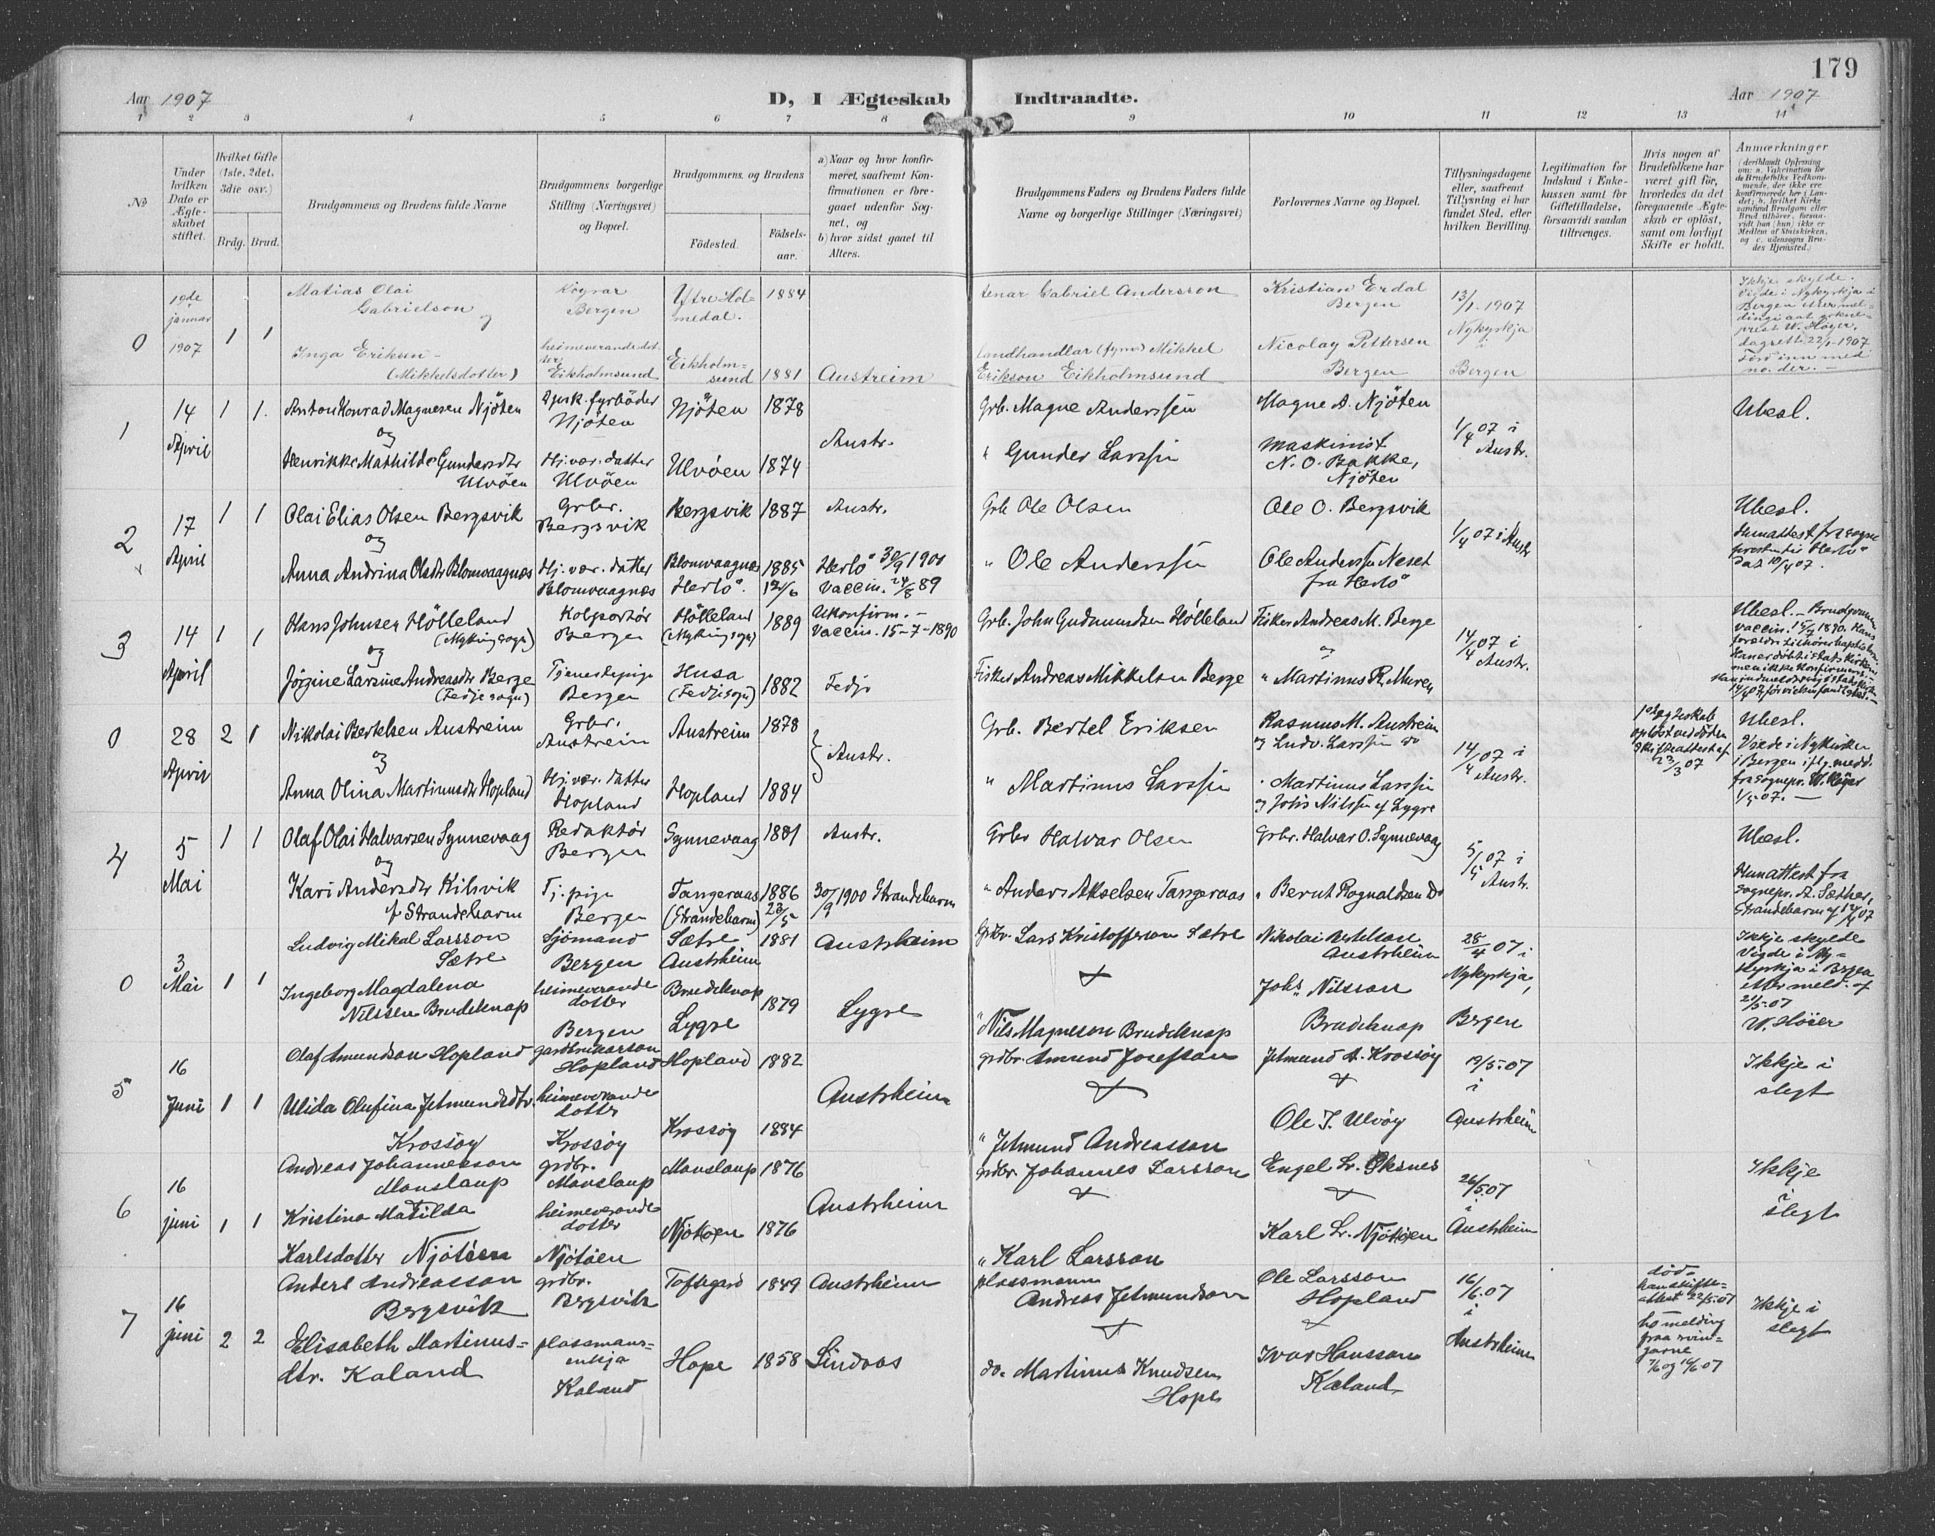 179
Aar 1907
D, I Ægteskab Indtraadte.
Aar 1907
1 2 3 4 5 6 7 8 9 10 11 12 13 14
No
Under hvilken Dato er Ægteskabet stiftet.
Hvilket Gifte (1ste, 2det, 3die osv.)
Brdg. Brud.
Brudgommens og Brudens fulde Navne
Brudgommens borgerlige Stilling (Næringsvei) og Bopæl.
Brudgommens og Brudens
Fødested.
Fødselsaar.
a) Naar og hvor konfirmeret, saafremt Konfirmationen er foregaaet udenfor Sognet, og
b) hvor sidst gaaet til Alters.
Brudgommens Faders og Brudens Faders fulde Navne og borgerlige Stillinger (Næringsvei)
Forlovernes Navne og Bopæl.
Tillysningsdagene eller, saafremt Tillysning ei har fundet Sted, efter hvilken Bevilling.
Legitimation for Indskud i Enkekassen samt for Giftetilladelse, forsaavidt saadan tiltrænges.
Hvis nogen af Brudefolkene har været gift før, hvorledes da det foregaaende Ægteskab er opløst, samt om lovligt Skifte er holdt.
Anmærkninger
0
19de januar 1907
1 1
Matias Olai Gabrielson
og
Inga Erikson (Mikkelsdotter)
Bergen
heimeverande dotter Eikholmsund
Ytre Holmedal.
1884
Eikholmsund
1881
Austreim
Gabriel Andersson
landhandlar Mikkel Erikson Eikholmsund
Kristian Erdal Bergen
Nicolay Pettersen Bergen
13/1 1907 Nykyrkja Bergen
Ikkje skylde. Vigde i Nykyrkja i Bergen etter meldingi aat sokneprest W. Høyer, dagsett 22/1-1907
1
14 April
1 1.
Anton Konrad Magnesen Njöten
og
Henrikke Mathilde Gundersdtr Ulvöen
fyrböder Njöten
Hj.vær. datter Ulvöen
Njöten
1878
Ulvöen
1874
Austr.
Grb. Magne Anderssen
" Gunder Larssen
Magne A. Njöten
Maskinist N. O. Bakke, Njöten
1/4 07 i Austr.
Ubesl.
2
17 April
1 1
Olai Elias Olsen Bergsvik
og
Anna Andrina Olsdtr Blomvaagnæs
Grbr. Bergsvik
Hj. vær. datter Blomvaagnæs
Bergsvik
1887
Blomvaagnæs Herlö.
1885 12/6
Austr.
Herlö 30/9 1900
vaccin. 24/8 89
Grb Ole Olsen
" Ole Anderssen
Ole O. Bergsvik
Ole Anderssen Neset fra Herlö
1/4 07 i Austr
Ubesl.
Hun attest fra sognepresten til Herlö dat 10/4 07.
3
14 April
1 1
Hans Johnsen Hölleland (Myking sogn)
og
Jörgine Larsine Andreasdtr Berge (Fedje sogn)
Kolportör Bergen
Tjenestepige Bergen
Hölleland (Myking sogn)
1889
Husa (Fedje sogn)
1882
Ukonfirm. – Vaccin. 15-7-1890
Fedje
Grb. John Gudmundsen Hölleland
Fisker Andreas Mikkelsen Berge
Fisker Andreas M. Berge
og
" Martinus R. Muren
14/4 07 i Austr.
Ubesl. – Brudgommen vaccin. 15/7 1890.
0
28 April
2 1
Nikolai Bertelsen Austreim
og
Anna Olina Martinusdtr Hopland
Grbr. Austreim
Hj. vær. datter Hopland
Austreim
1878
Hopland
1884
Austr.
Grb. Bertel Eriksen
" Martinus Larssen
Rasmus M. Austreim
og Ludv. Larssen do
Martinus Larssen
og Johs Nilssen af Lygre
14/4 07 i Austr.
1ste Ægteskab oplöst ved döden Skifteattest af 23/3 07
Ubesl.
Viede i Nykirken i Bergen iflg. medd. fra sognepr. W. Höyer 1/5-07. –
4
5 Mai
1 1
Olaf Olai Halvarsen Synnevaag
og
Kari Andersdtr Kilsvik f Strandebarm
Redaktör Bergen
Tj. pige Bergen
Synnevaag
1881
Tangeraas (Strandebarm)
1886 23/5
Austr.
30/9 1900 Strandebarm
Grbr Halvar Olsen
" Anders Akselsen Tangeraas
Grbr. Halvar O. Synnevaag
" Bernt Rognaldsen Do
5/5 07 i Austr.
Ubesl.
Hun attest fra Sognepr. A. Sæther, Strandebarm af 12/4 07
0
3 Mai
1 1
Ludvig Mikal Larsson Sætre
Ingeborg Magdalena Nilssen Brudeknap
Sjömand Bergen
heimeverande dotter Bergen
Sætre Austrheim
1881
Brudeknap Lygre
1879
Austrheim
Lygre
Grdbr. Lars Kristofferson Sætre
" Nils Magneson Brudeknap
Nikolai Bertelson Austrheim
Johs Nilsson Brudeknap
28/4 07 i Nykyrkja, Bergen
Ikkje skylde
Vigde i Nykyrkja i Bergen etter meld. af 21/5-07 W. Höier
5
16 Juni
1 1
Olaf Amundson Hopland
Ulida Olufina Jetmundsdtr. Krossöy
gardbrukarson Hopland
heimeverande dotter Krossöy
Hopland
1882
Krossöy
1884
Austrheim
grdbr. Amund Josefson
" Jetmund Andreasson
Jetmund A. Krossöy
Ole J. Ulvöy
19/5-07 i Austrheim
Ikkje i slegt
6
16 juni
1 1
Andreas Johannesson Monslaup
Kristina Matilda Karlsdotter Njötöen
grdbr. Monslaup
heimeverande dotter Njötöen
Monslaup
1876
Njötöen
1876
Austrheim
grdbr. Johannes Larsson
" Karl Larsson
Engel Lr. Oksnes
Karl Lr. Njötöen
26/5.07 i Austrheim
Ikkje i slegt
7
16 juni
2 2
Anders Andreasson Bergsvik
Elisabeth Martinusdtr. Kaland
grdbr. Bergsvik
plassmansenkja Kaland
Toftegard
1849
Hope
1858
Austrheim
Lindaas
plassmann Andreas Jetmundson
do. Martinus Knudsen Hope
Ole Larsson Hopland
Ivar Hansson Kaland
16/6.07 i Austrheim
död. han skifteattest 22/5.07
ho melding fraa
Ikkje i slegt